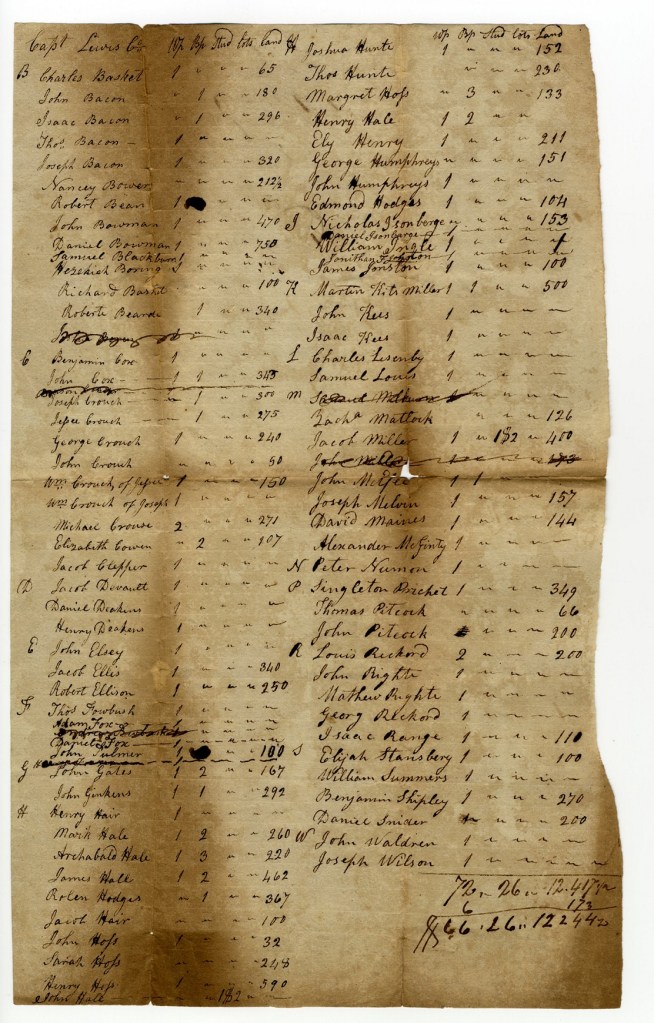 Capt Lewis Co Wp Bp Stud Lots Land
B Charles Basket 1 " " " 65
John Bacon " 1 " " 180
Isaac Bacon 1 " " 296
Thos. Bacon — 1 " " " "
Joseph Bacon 1 " " " 320
Nancey Bower " " " " 212½
Robert Bean 1 " " "
John Bowman 1 " " " 470
Daniel Bowman 1 " " " 750
Samuel Blackburn 1 " " "
Hezekiah Boring 1 " " "
Richard Basket " " " 100
Roberte Bearde 1 " " 340
C Benjamin Cox 1 " " " "
John Cox — 1 1 " " 345
Joseph Crouch 1 " " " 300
Jessee Crouch — 1 " " 275
George Crouch 1 " " " 240
John Crouch " " " " 50
Wm. Crouch of Jessee 1 " " " 150
Wm Crouch of Joseph 1 " " " "
Michael Crouse 2 " " " 271
Elizabeth Cowen " 2 " " 107
Jacob Clepper 1 " " " "
D Jacob Devault 1 " " " "
Daniel Deakens 1 " " " "
Henry Deakens 1 " " " "
E John Elsey 1 " " " "
Jacob Ellis 1 " " " 340
Robert Ellison 1 " " " 250
F Thos Fowbush 1 " " " "
Adam Fox 1 " " " "
Daniel Fox 1 " " " "
John Fulmer 1 " " 100
G John Gates 1 2 " " 167
John Ginkens 1 1 " " 292
H Henry Hair 1 " " " "
Mark Hale 1 2 " " 260
Archabald Hale 1 3 " " 220
James Hall 1 2 " " 462
Rolen Hodges " 1 " " 367
Jacob Hair " " " " 100
John Hoss " " " " 32
Sarah Hoss " " " " 248
Henry Hoss 1 " " " 590
John Hall — 1 8 2 " "
Wp Bp Stud Lots Land
H Joshua Hunte 1 " " " 152
Thos Hunte " " " 236
Margret Hoss " 3 " " 133
Henry Hale 1 2 " "
Ely Henry 1 " " " 211
George Humphreys " " " " 151
John Humphreys 1 " " " "
Edmond Hodges 1 " " " 104
J Nicholas Isonberge " " " " 153
William Ingle 1 " " "
James Jonston 1 " " " 100
K Martin Kits Miller 1 1 " " 500
John Kees 1 " " " "
Isaac Kees 1 " " " "
L Charles Lesenby 1 " " " "
Samuel Louis 1 " " " "
M
Zacha Matlock " " " " 126
Jacob Miller 1 " 182 " 400
John Miller 1 " " " 173
John McEfee 1 1 — — —
Joseph Melvin 1 " " " 157
David Maines 1 " " " 144
Alexander McGinty 1 " " " "
N Peter Numon 1 " " " "
P Singleton Pricket 1 " " " 349
Thomas Pitcock " " " " 66
John Pitcock " " " 200
R Louis Reckord 2 " " " 200
John Righte 1 " " " "
Mathew Righte 1 " " " "
Georg Reckord 1 " " " "
Isaac Range 1 " " " 110
S Elijah Stansbery 1 " " " 100
William Summers 1 " " " "
Benjamin Shipley 1 " " " 270
Daniel Snider " " " 200
W John Waldren 1 " " " "
Joseph Wilson 1 " " " "
72 " 26 " 12.417½
6 173
66 " 26 " 12244½